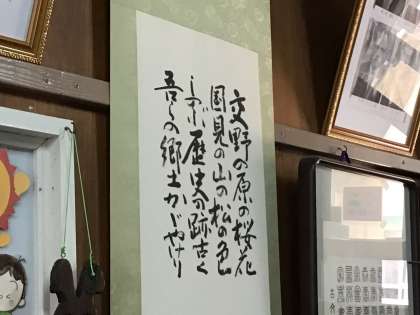 交野の原の桜花
国見の山の松の色
しのぶ歴史の跡古く
吾らの郷土かゞやけり